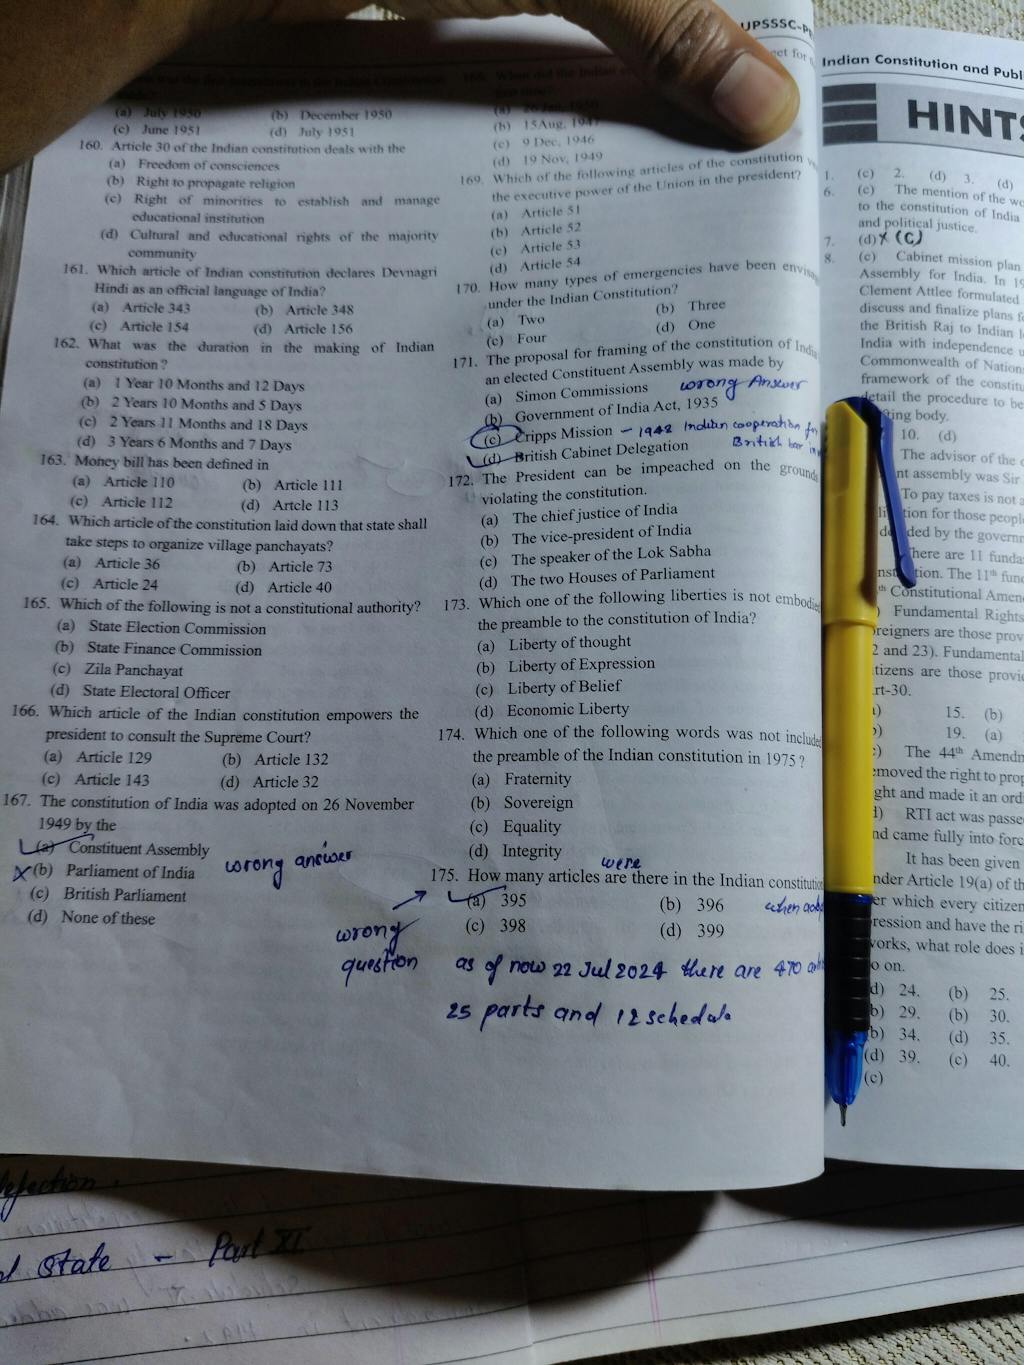 (a) July 1950 (b) December 1950
(c) June 1951 (d) July 1951
160. Article 30 of the Indian constitution deals with the
(a) Freedom of consciences
(b) Right to propagate religion
(c) Right of minorities to establish and manage
educational institution
(d) Cultural and educational rights of the majority
community
161. Which article of Indian constitution declares Devnagri
Hindi as an official language of India?
(a) Article 343 (b) Article 348
(c) Article 154 (d) Article 156
162. What was the duration in the making of Indian
constitution ?
(a) 1 Year 10 Months and 12 Days
(b) 2 Years 10 Months and 5 Days
(c) 2 Years 11 Months and 18 Days
(d) 3 Years 6 Months and 7 Days
163. Money bill has been defined in
(a) Article 110 (b) Article 111
(c) Article 112 (d) Artcle 113
164. Which article of the constitution laid down that state shall
take steps to organize village panchayats?
(a) Article 36 (b) Article 73
(c) Article 24 (d) Article 40
165. Which of the following is not a constitutional authority?
(a) State Election Commission
(b) State Finance Commission
(c) Zila Panchayat
(d) State Electoral Officer
166. Which article of the Indian constitution empowers the
president to consult the Supreme Court?
(a) Article 129 (b) Article 132
(c) Article 143 (d) Article 32
167. The constitution of India was adopted on 26 November
1949 by the
(a) Constituent Assembly
(b) Parliament of India wrong answer
(c) British Parliament
(d) None of these
UPSSSC-P
(b) 15Aug, 194
(c) 9 Dec, 1946
(d) 19 Nov, 1949
169. Which of the following articles of the constitution
the executive power of the Union in the president?
(a) Article 51
(b) Article 52
(c) Article 53
(d) Article 54
170. How many types of emergencies have been envis
under the Indian Constitution?
(a) Two (b) Three
(c) Four (d) One
171. The proposal for framing of the constitution of India
an elected Constituent Assembly was made by
(a) Simon Commissions wrong Answer
(b) Government of India Act, 1935
(c) Cripps Mission – 1942 Indian cooperation for
(d) British Cabinet Delegation British
172. The President can be impeached on the grounds
violating the constitution.
(a) The chief justice of India
(b) The vice-president of India
(c) The speaker of the Lok Sabha
(d) The two Houses of Parliament
173. Which one of the following liberties is not embodied
the preamble to the constitution of India?
(a) Liberty of thought
(b) Liberty of Expression
(c) Liberty of Belief
(d) Economic Liberty
174. Which one of the following words was not included
the preamble of the Indian constitution in 1975 ?
(a) Fraternity
(b) Sovereign
(c) Equality
(d) Integrity
were
175. How many articles are there in the Indian constitution
(a) 395 (b) 396 when
(c) 398 (d) 399
wrong
question
as of now 22 Jul 2024 there are 470
25 parts and 12 schedule
Indian Constitution and Publ
HINTS
1. (c) 2. (d) 3. (d)
6. (c) The mention of the wo
to the constitution of India
and political justice.
7. (d) x (c)
8. (c) Cabinet mission plan
Assembly for India. In 19
Clement Attlee formulated
discuss and finalize plans fo
the British Raj to Indian l
India with independence u
Commonwealth of Nation
framework of the constitu
detail the procedure to be
ing body.
10. (d)
The advisor of the c
nt assembly was Sir
To pay taxes is not a
tion for those people
ded by the governm
There are 11 funda
tion. The 11th fund
th Constitutional Amen
Fundamental Rights
reigners are those prov
2 and 23). Fundamental
tizens are those provi
rt-30.
15. (b)
19. (a)
The 44th Amendm
emoved the right to prop
ght and made it an ordi
RTI act was passe
nd came fully into forc
It has been given
nder Article 19(a) of th
er which every citizen
ression and have the ri
works, what role does i
o on.
d) 24. (b) 25.
b) 29. (b) 30.
b) 34. (d) 35.
(d) 39. (c) 40.
(c)
State – Part XI